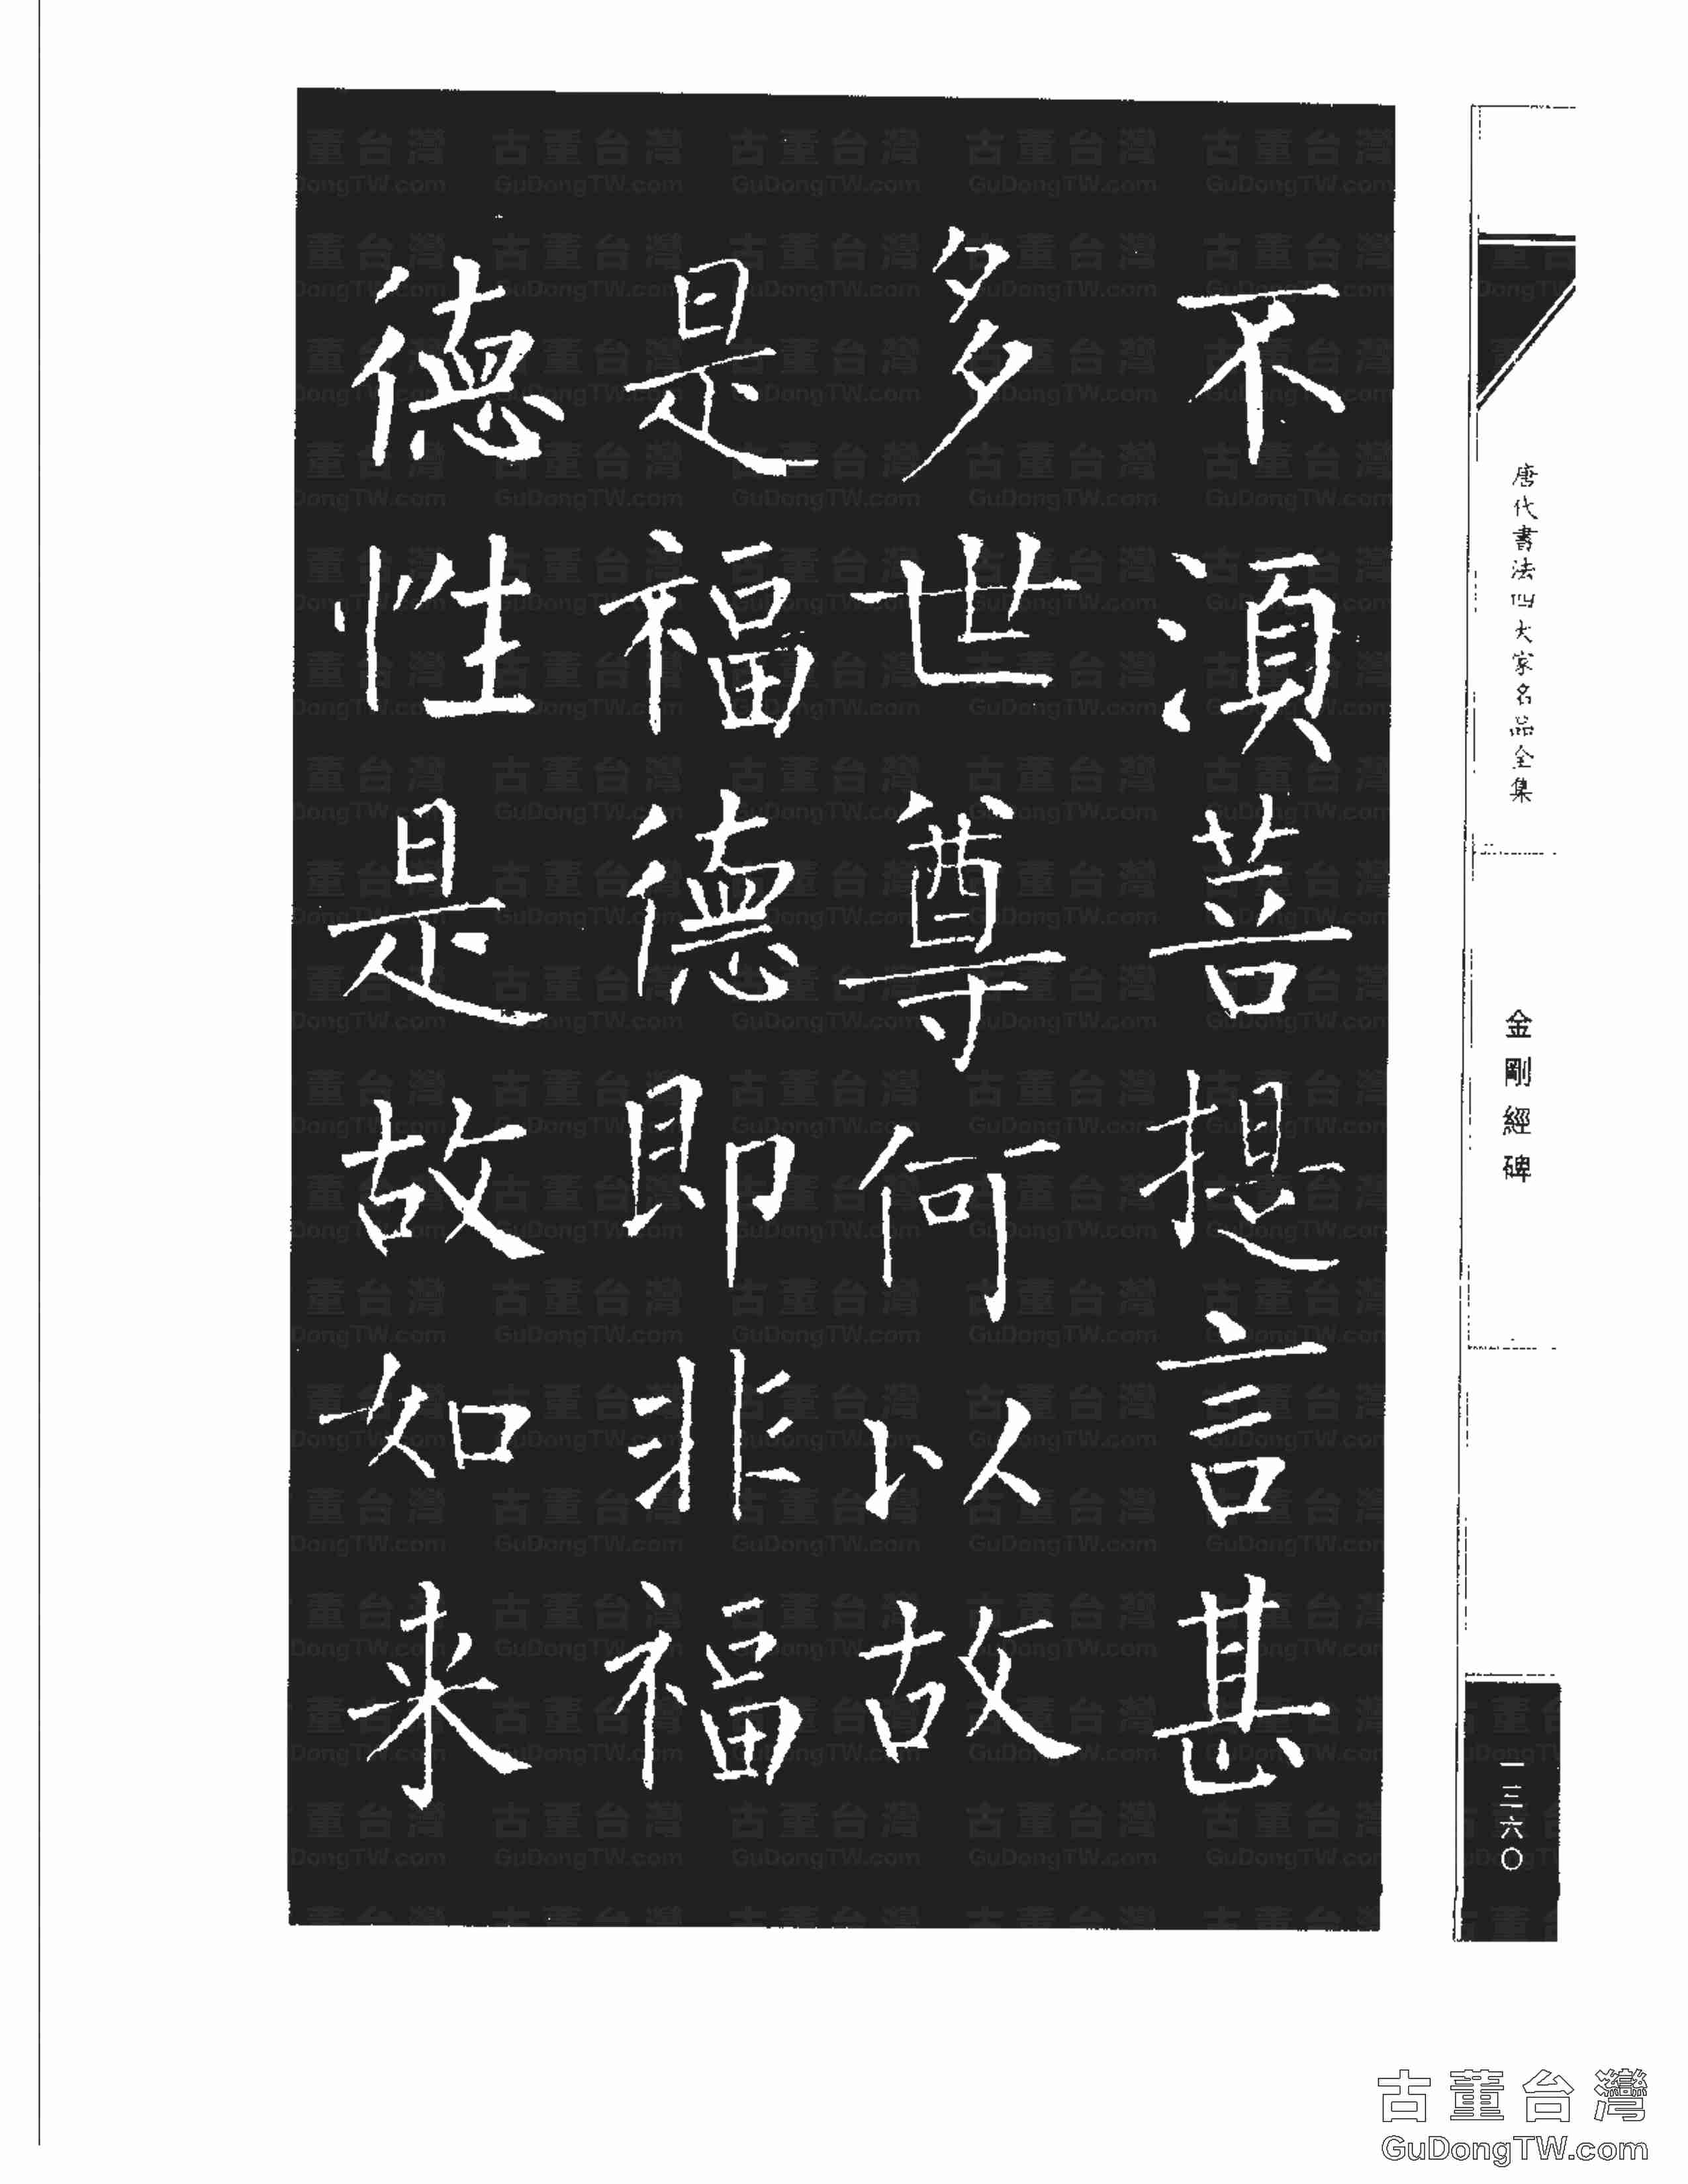 不須菩提言甚
多世尊何以故
是福德即非福
德性是故如来
唐代書法四大家名品全集
金剛經碑
一三六〇
古董台灣
GuDongTW.com